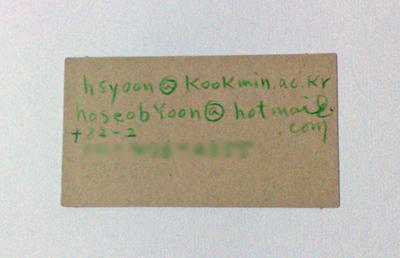 hsyoon@kookmin.ac.kr
hoseobYoon@hotmail.
com
+82-2